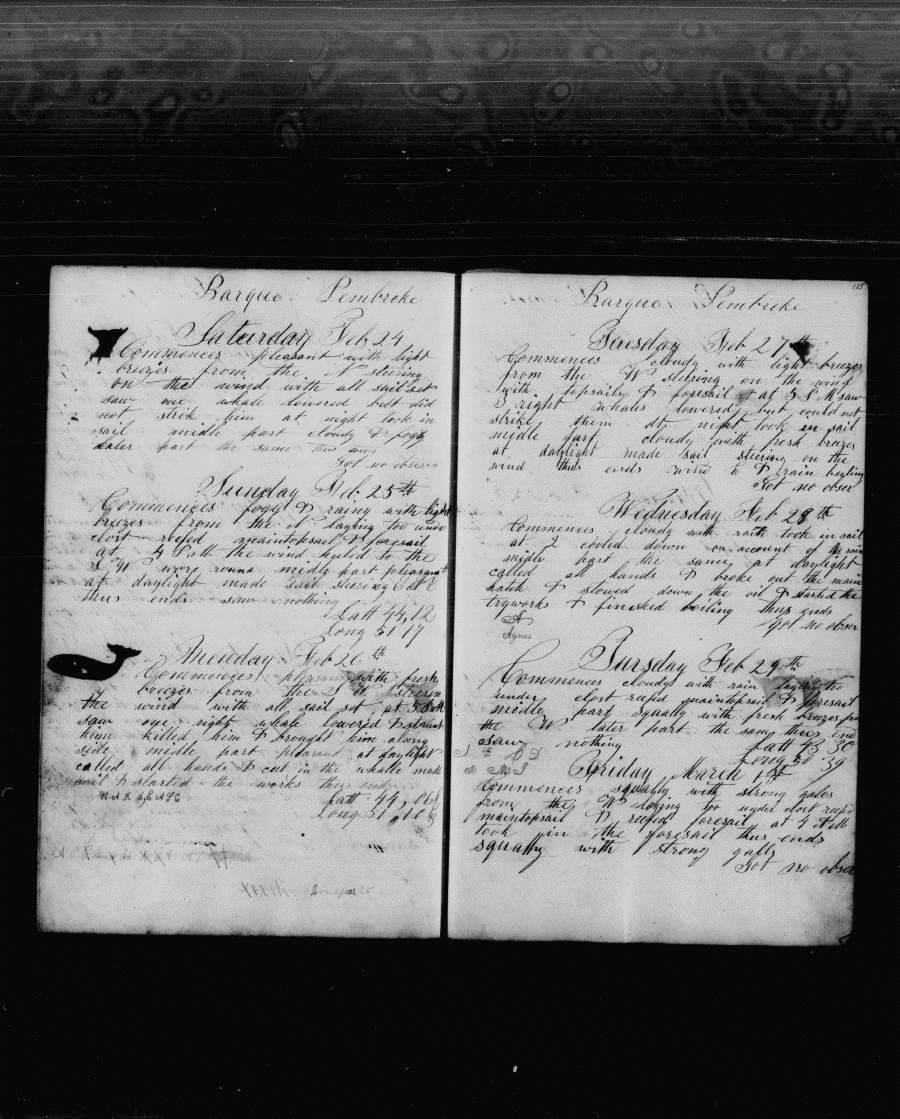 Barque Pembroke
Saturday Feb 24
Commences pleasant with light
breezes from the N steering
on the wind with all sail set
saw one whale lowered but did
not strik him at night took in
sail midle part cloudy & fogy
later part the same thus ends
Got no obser
Sunday Feb 25th
Commences fogy & rainy with light
breezes from the N laying too under
clost reefed maintopsail & foresail
at 4 P Mth the wind hauled to the
S W wore round midle part pleasant
at daylight made sail steering
thus ends saw nothing
Latt 44,12
Long 51 17
Monday Feb 26th
Commences pleasant with fresh
breezes from the S W steerin
the wind with all sail set at 5 P M
saw one right whale lowered & struck
him killed him & brought him along
side midle part pleasant at daylight
called all hands & cut in the whale made
sail & started the works thus ends
Latt 44,06
Long 51,10
115
Barque Pembroke
Tuesday Feb 27th
Commences cloudy with light breezes
from the W steering on the wind
with topsails & foresail at 5 P M saw
3 right whales lowered but could not
strike them at night took in sail
midle part cloudy with fresh breezes
at daylight made sail steering on the
wind thus ends wind E & rain boyling
Got no obser
Wednesday Feb 28th
Commences cloudy with rain took in sail
at 2 cooled down on account of the rain
midle part the same at daylight
called all hands & broke out the main
hatch & stowed down the oil & started the
tryworks & finished boiling thus ends
Got no obser
A
Agnes
Thursday Feb 29th
Commences cloudy with rain laying too
under clost reefed maintopsail & foresail
midle part squaly with fresh breezes from
the W later part the same thus ends
saw nothing Latt 43 30
Long 50 39
Friday March 1st
Commences squaly with strong gales
from the W laying too under clost reefed
maintopsail & reefed foresail at 4 A M
took in the foresail thus ends
squally with strong gales
Got no obser